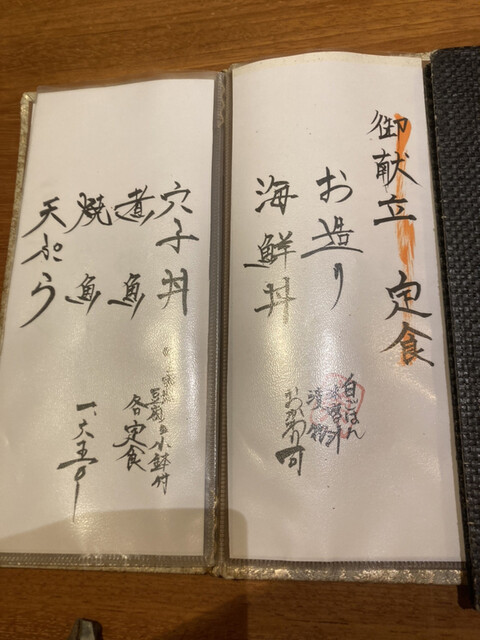 御献立 定食
お造り
海鮮丼
白ごはん
おかわり可
穴子丼
煮魚
焼魚
天ぷら
小鉢付
各定食